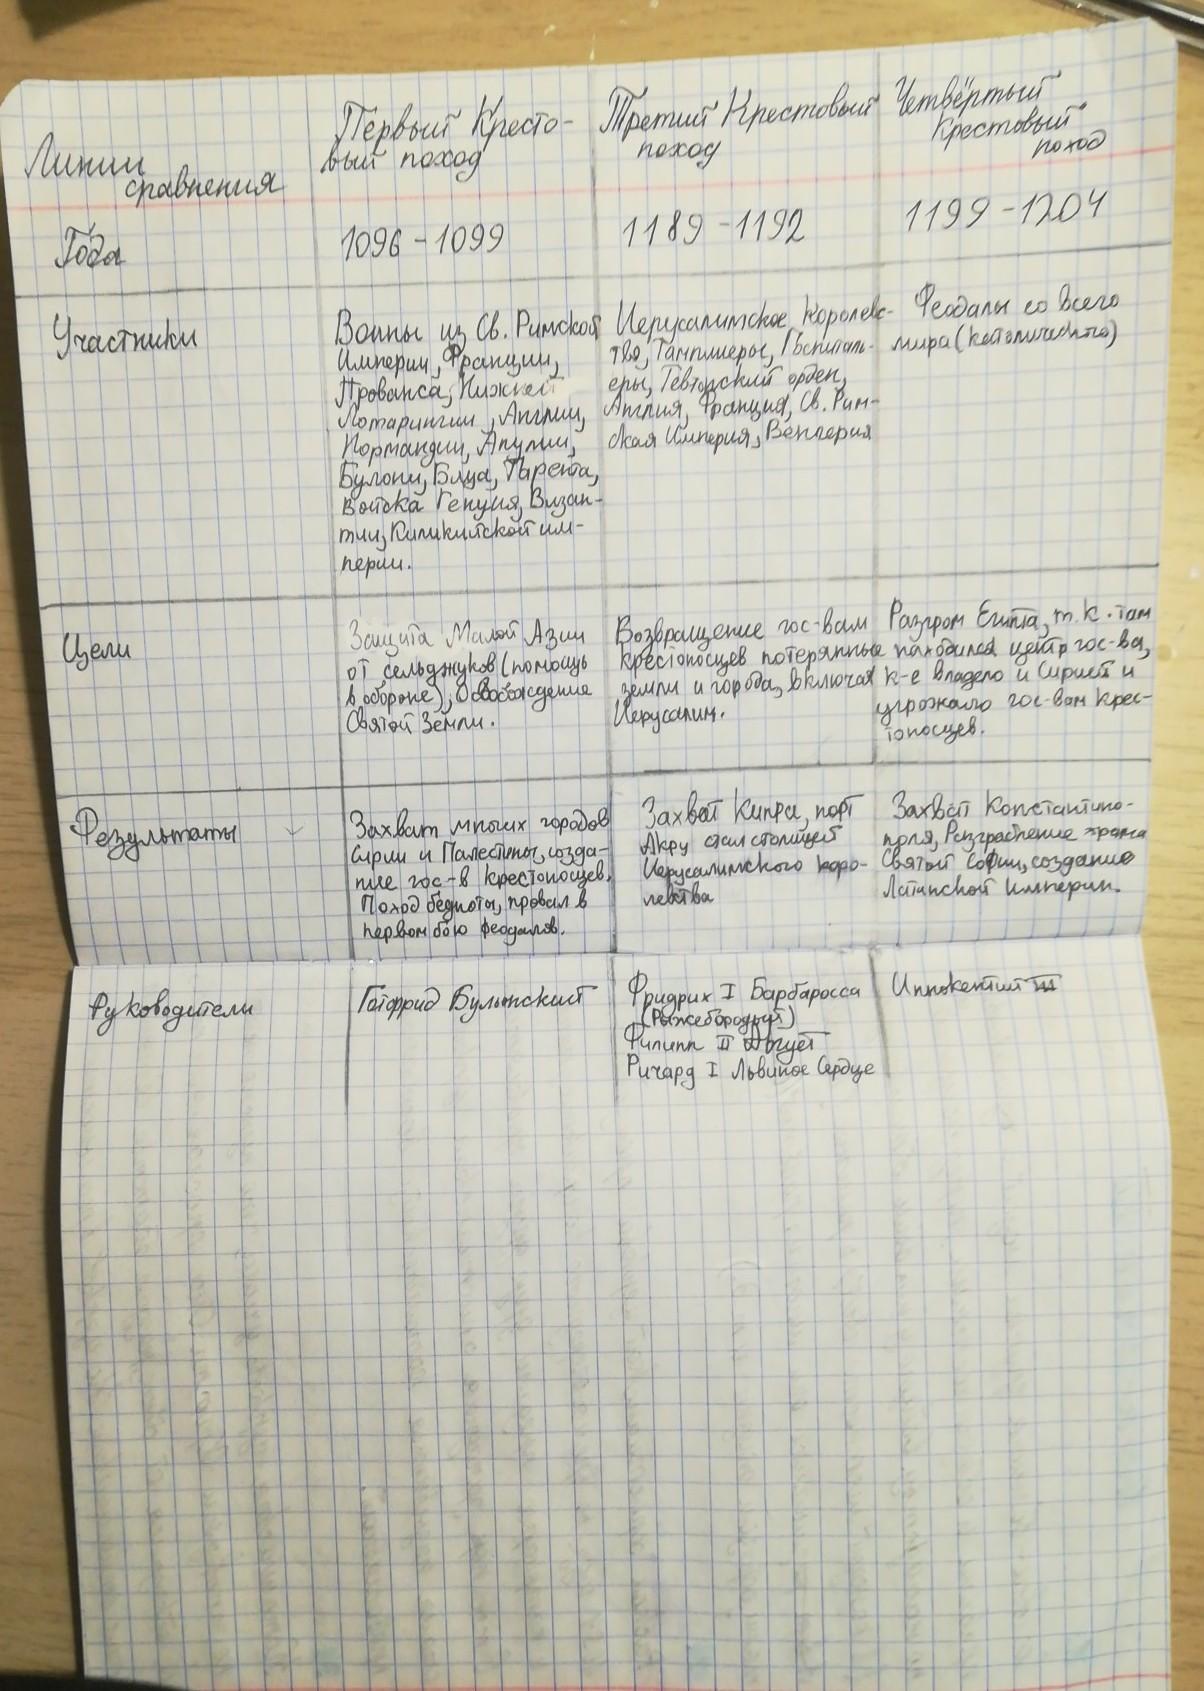 Линии
сравнения
Первый Кресто-
вый поход
Третий Крестовый
поход
Четвёртый
Крестовый
поход
Года
1096 - 1099
1189 - 1192
1199 - 1204
Участники
Воины из Св. Римской
Империи, Франции,
Прованса, Нижней
Лотарингии, Англии,
Нормандии, Апулии,
Булони, Блуа, Тарента,
войска Генуия, Визан-
тии, Киликийской им-
перии.
Иерусалимское Королевс-
тво, Тамплиеры, Госпиталь-
еры, Тевтонский орден,
Англия, Франция, Св. Рим-
ская Империя, Венгерия
Феодалы со всего
мира (католического)
Цели
Защита Малой Азии
от сельджуков (помощь
в обороне), Освобождение
Святой Земли.
Возвращение гос-вам
крестоносцев потерянные
земли и города, включая
Иерусалим.
Разгром Египта, т.к. там
находился центр гос-ва,
к-е владело и Сирией и
угрожало гос-вам крес-
тоносцев.
Результаты
Захват многих городов
Сирии и Палестины, созда-
ние гос-в крестоносцев.
Поход бедноты, провал в
первом бою феодалов.
Захват Кипра, порт
Акру стал столицей
Иерусалимского коро-
левства
Захват Константино-
поля, Разграбление храма
Святой Софии, создание
Латинской Империи.
Руководители
Готфрид Бульонский
Фридрих I Барбаросса
(Рыжебородый)
Филипп II Август
Ричард I Львиное Сердце
Иннокентий III